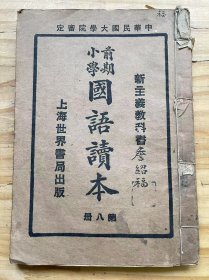 中華民國大學院審定
新主義教科書
詹紹福
前期
小學
國語讀本
第八册
上海世界書局出版